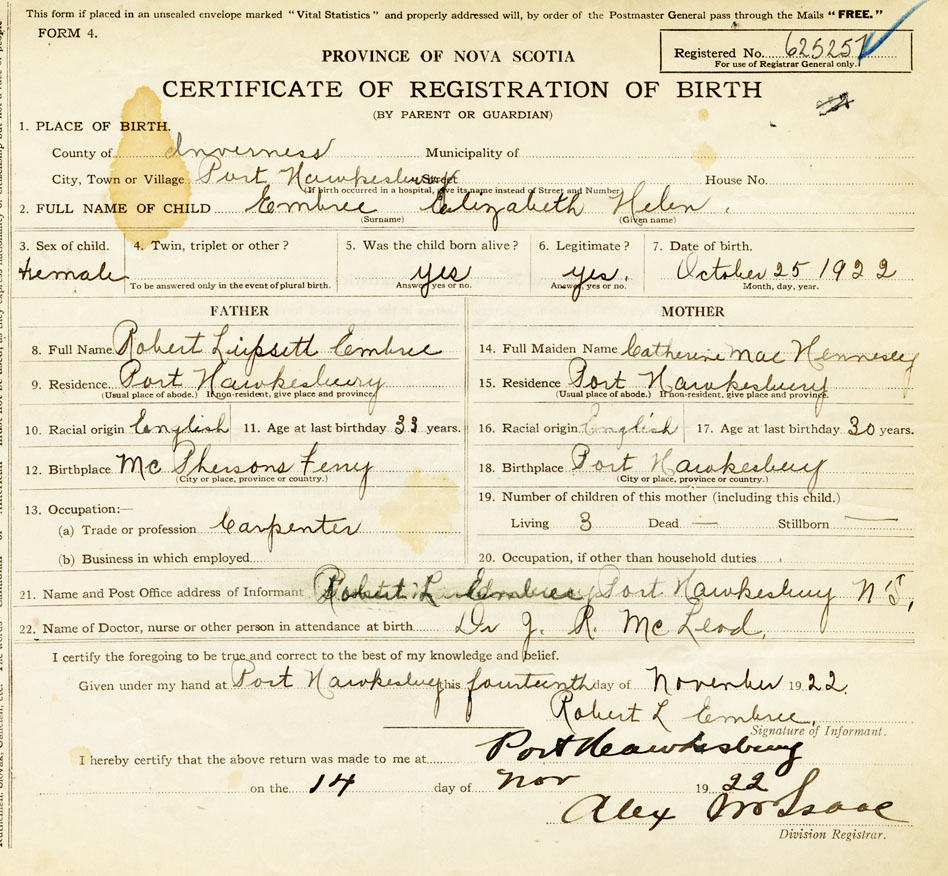 This form if placed in an unsealed envelope marked "Vital Statistics" and properly addressed will, by order of the Postmaster General pass through the Mails "FREE."
FORM 4.
Registered No. 625257
For use of Registrar General only.
PROVINCE OF NOVA SCOTIA
CERTIFICATE OF REGISTRATION OF BIRTH
(BY PARENT OR GUARDIAN)
1. PLACE OF BIRTH.
County of Inverness Municipality of
City, Town or Village Port Hawkesbury Street House No.
(If birth occurred in a hospital, give its name instead of Street and Number)
2. FULL NAME OF CHILD Embree Elizabeth Helen.
(Surname) (Given name)
3. Sex of child. 4. Twin, triplet or other? 5. Was the child born alive? 6. Legitimate? 7. Date of birth.
Female yes yes. October 25 1922
To be answered only in the event of plural birth. Answer yes or no. Answer, yes or no. Month, day, year.
FATHER MOTHER
8. Full Name Robert Lipsett Embree 14. Full Maiden Name Catherine Mac Hennesey
9. Residence Port Hawkesbury 15. Residence Port Hawkesbury
(Usual place of abode.) If non-resident, give place and province. (Usual place of abode.) If non-resident, give place and province.
10. Racial origin English 11. Age at last birthday 33 years. 16. Racial origin English 17. Age at last birthday 30 years.
12. Birthplace Mc Phersons Ferry 18. Birthplace Port Hawkesbury
(City or place, province or country.) (City or place, province or country.)
13. Occupation:— 19. Number of children of this mother (including this child.)
(a) Trade or profession Carpenter Living 3 Dead — Stillborn —
(b) Business in which employed 20. Occupation, if other than household duties
21. Name and Post Office address of Informant Robert L Embree Port Hawkesbury N S,
22. Name of Doctor, nurse or other person in attendance at birth Dr J. R. McLeod,
I certify the foregoing to be true and correct to the best of my knowledge and belief.
Given under my hand at Port Hawkesbury this fourteenth day of November 1922.
Robert L Embree,
Signature of Informant.
I hereby certify that the above return was made to me at Port Hawkesbury
on the 14 day of Nov 1922
Alex McIsaac
Division Registrar.